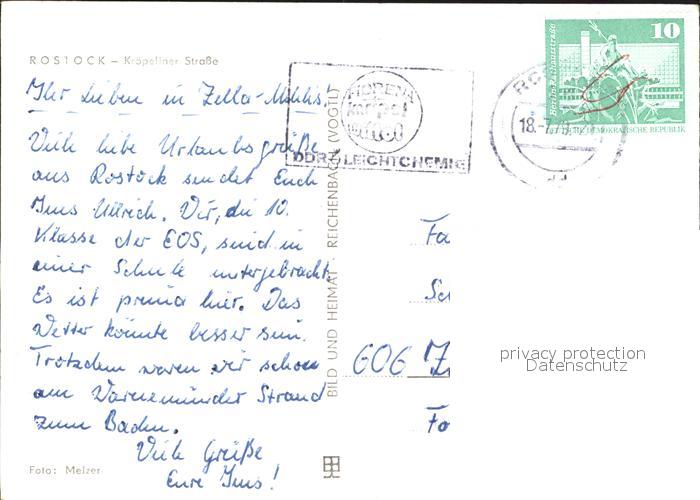 ROSTOCK – Kröpeliner Straße
Ihr Lieben in Zella-Mehlis!
Viele liebe Urlaubsgrüße
aus Rostock sendet Euch
Jens Ullrich. Wir, die 10.
Klasse der EOS, sind in
einer Schule untergebracht.
Es ist prima hier. Das
Wetter könnte besser sein.
Trotzdem waren wir schon
am Warnemünder Strand
zum Baden.
Viele Grüße
Eure Jens!
Foto: Melzer
BILD UND HEIMAT · REICHENBACH (VOGTL)
FLORENA
DDR LEICHTCHEMIE
RO
18.-7.
10
Berlin-Rathausstraße
DEUTSCHE DEMOKRATISCHE REPUBLIK
Fa
Sc
606 Z
Fo
privacy protection
Datenschutz